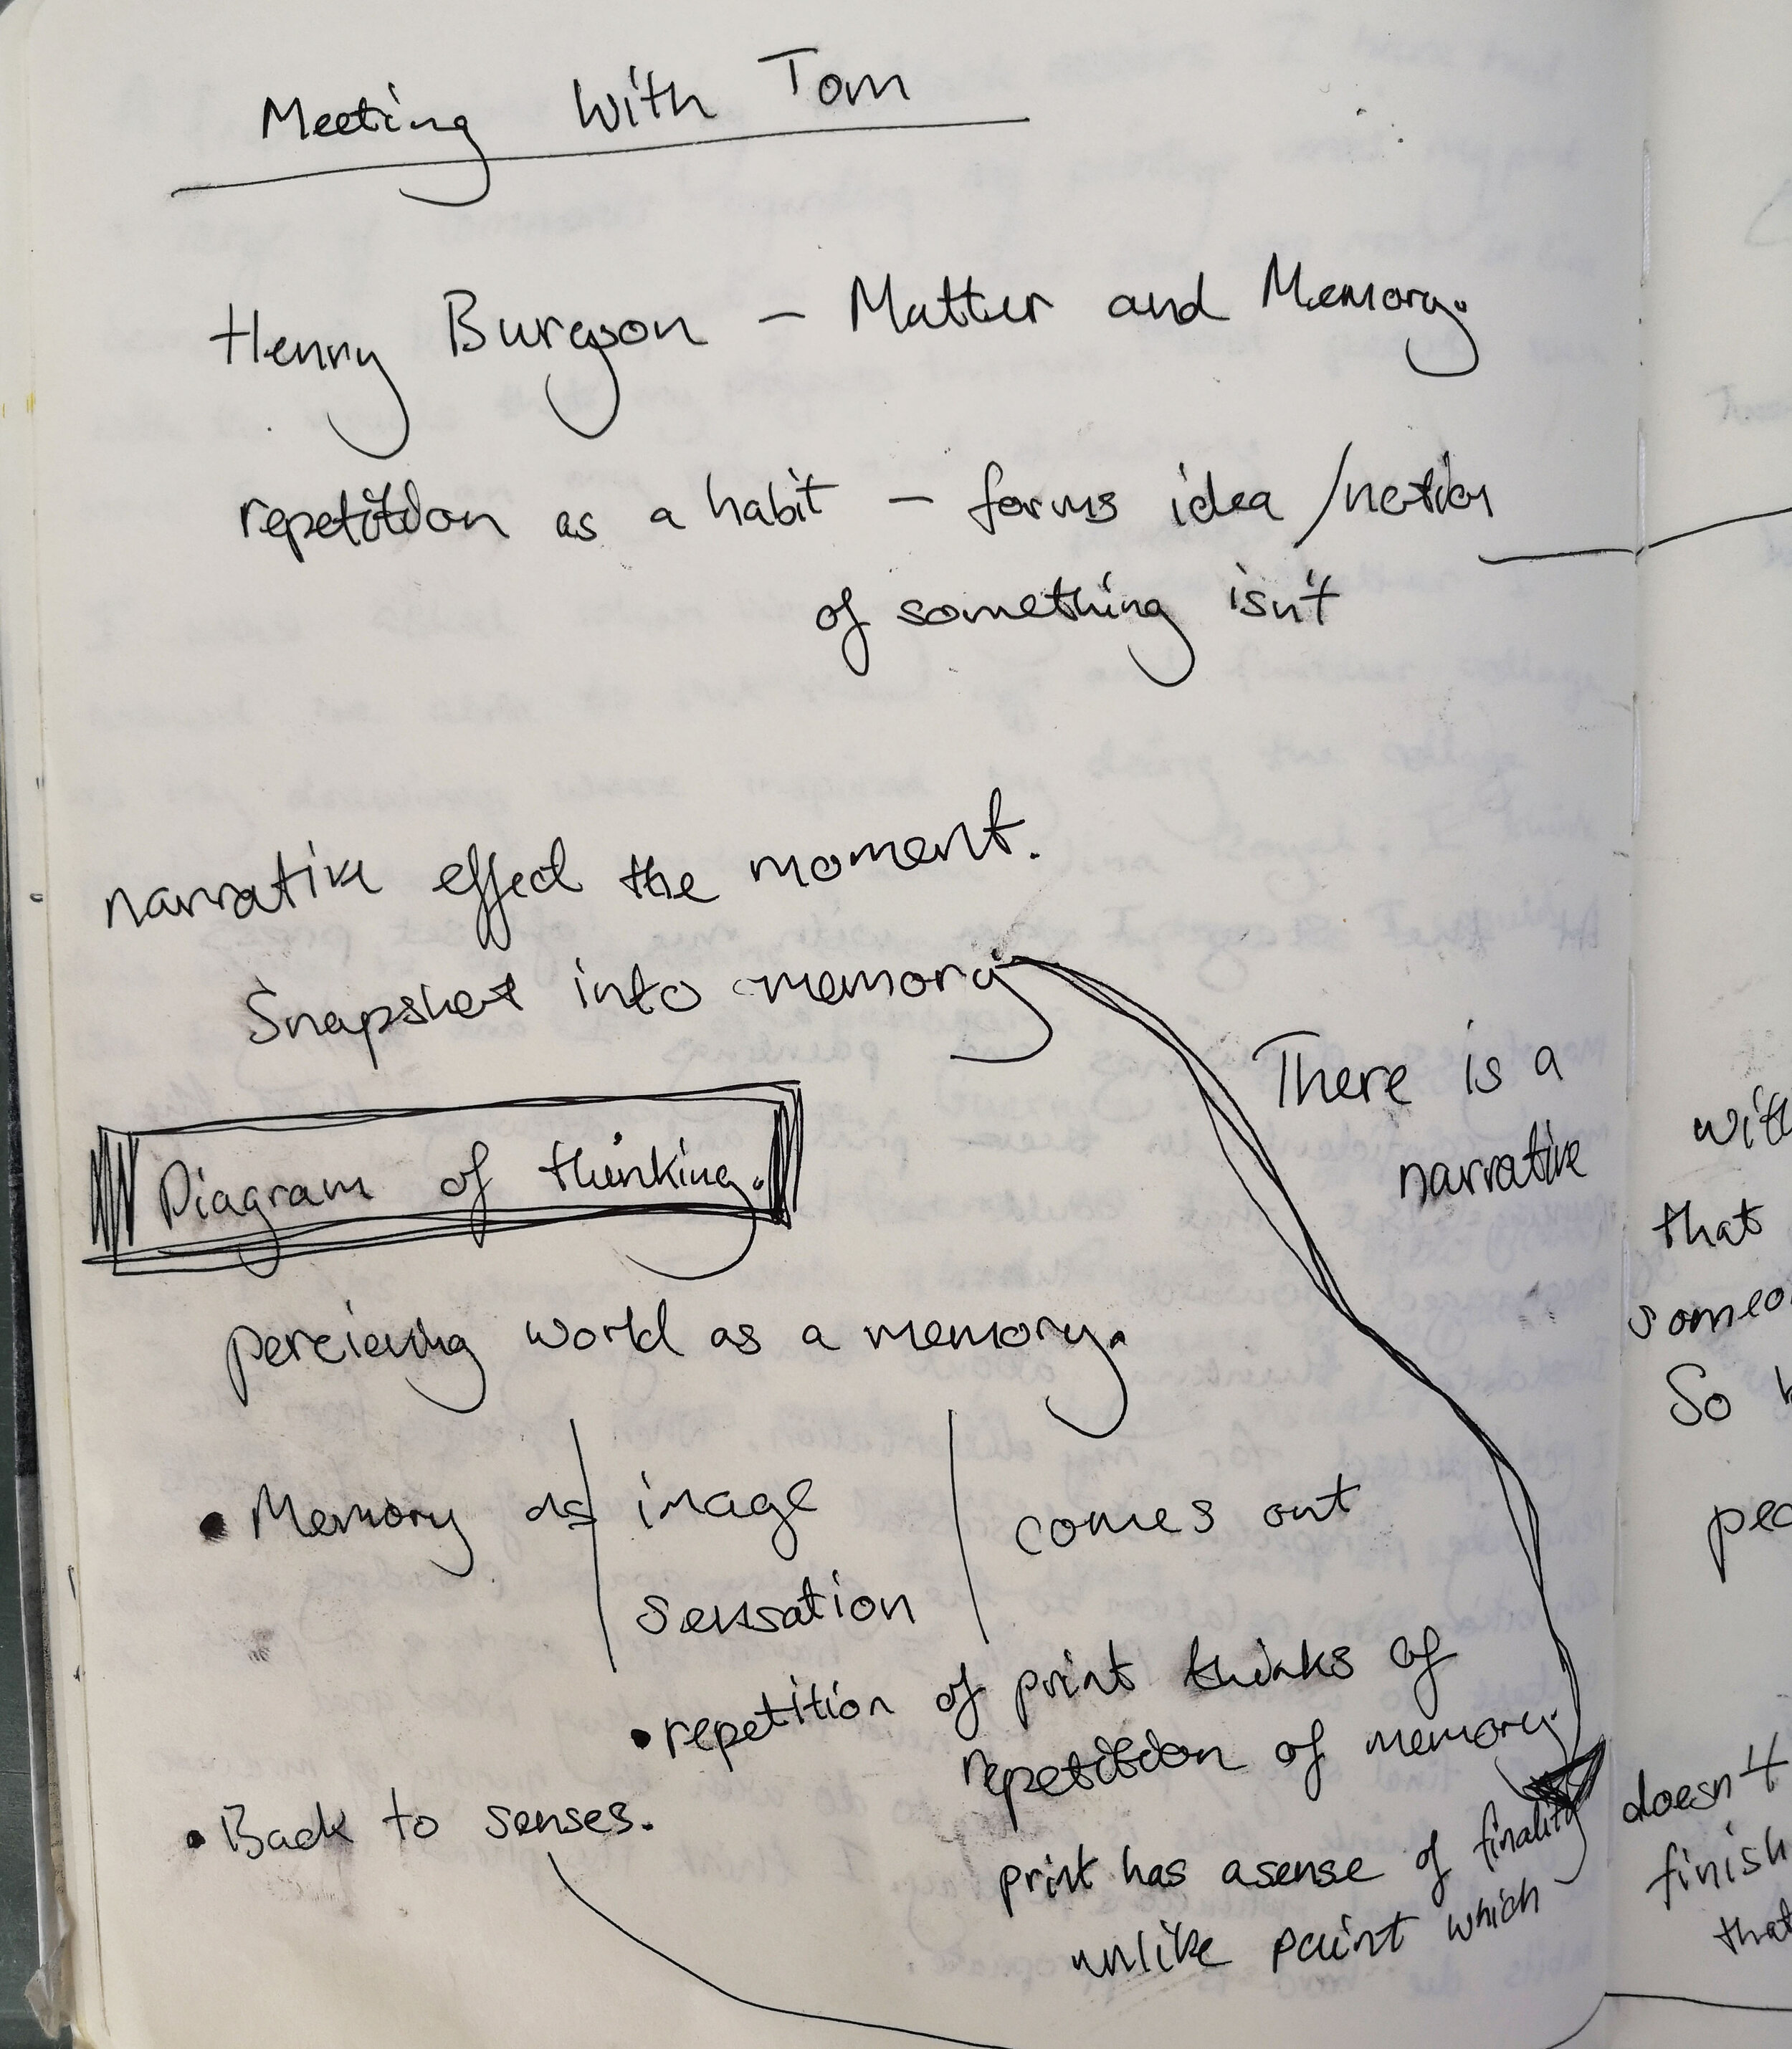 Meeting With Tom
Henry Burgson – Matter and Memory.
repetition as a habit – forms idea /notion
of something isn't
narrative effect the moment.
Snapshot into memory
There is a
narrative
Diagram of thinking.
percieving world as a memory.
• Memory as | image | comes out
sensation
• repetition of print thinks of
repetition of memory.
• Back to senses.
print has a sense of finality
unlike paint which
that
So
doesn't
finish
that